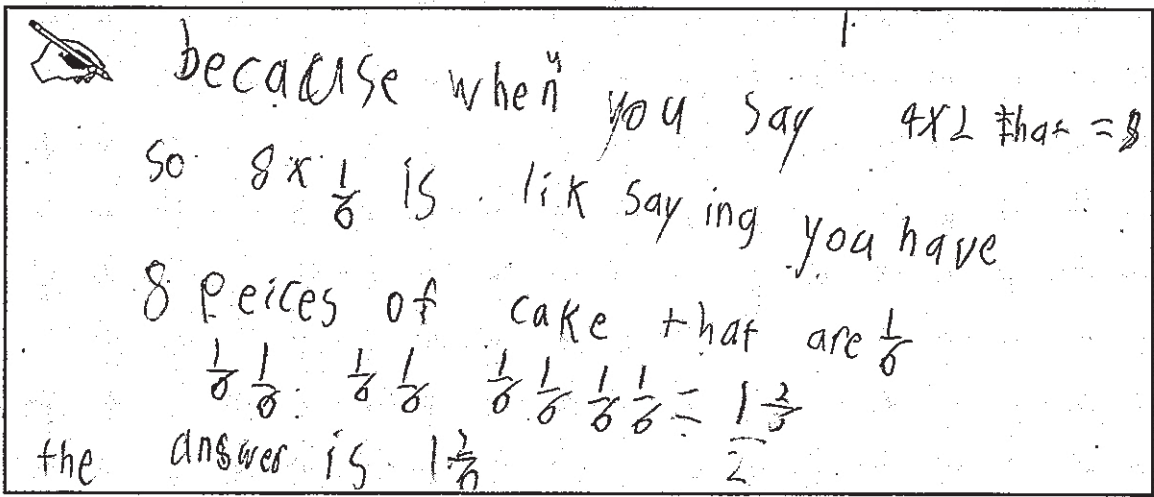 becacuse when you say 4x2 that = 8
so 8 x 1/6 is lik saying you have
8 peices of cake that are 1/6
1/6 1/6 1/6 1/6 1/6 1/6 1/6 1/6 = 1 2/6
2
the answer is 1 2/6